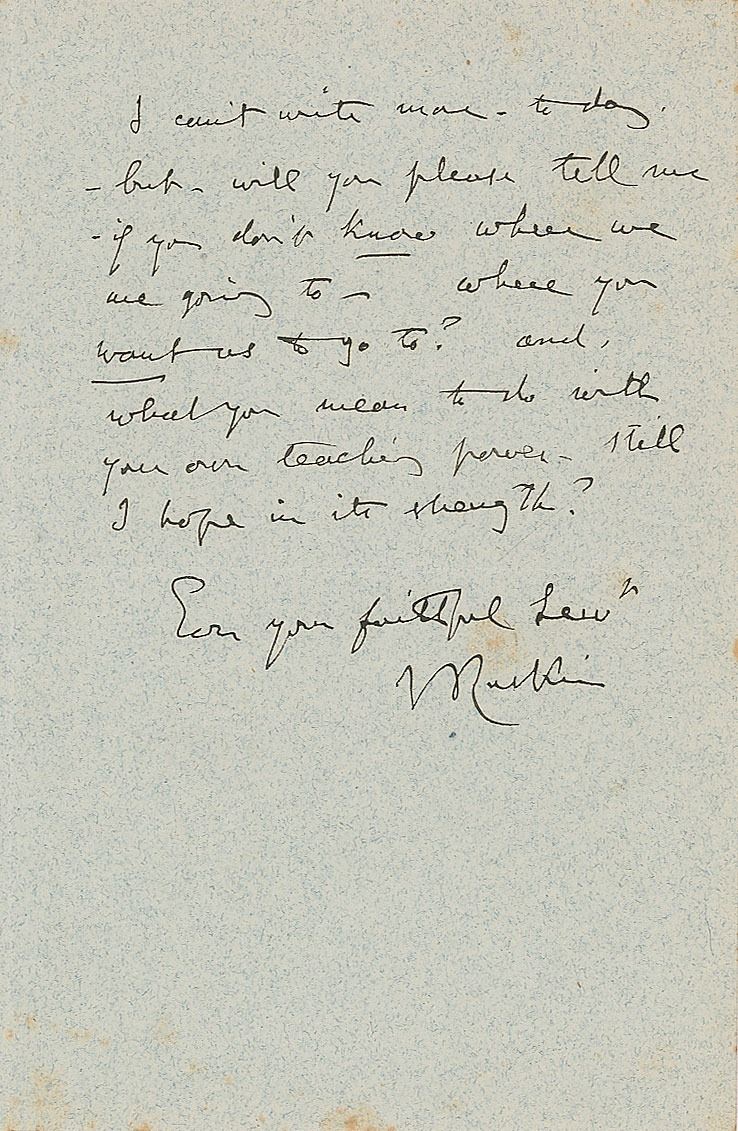 I can't write more - to day.
- but - will you please tell me
- if you don't know where we
are going to - where you
want us to go to? and,
what you mean to do with
your own teaching power - still
I hope in its strength?
Ever your faithful Servt
JRuskin